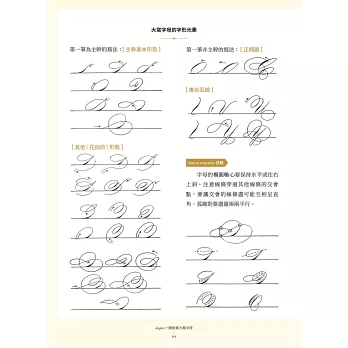 大寫字母的字形元素
第一筆為主幹的寫法：【主幹基本形態】
第一筆非主幹的寫法：【正橢圓】
【複合弧線】
【其他（花俏的）形態】
評析
字母的橢圓軸心要保持水平或往右
上斜。注意線條穿過其他線條的交會
點，要讓交會的線條盡可能互相呈直
角，弧線則要盡量兩兩平行。